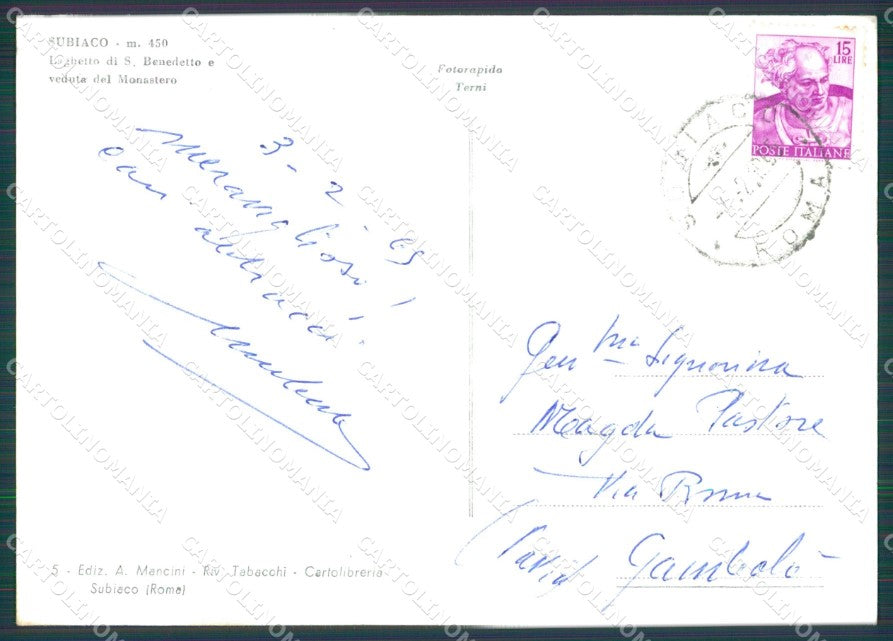 SUBIACO - m. 450
Laghetto di S. Benedetto e
veduta del Monastero
Fotorapida
Terni
15
LIRE
POSTE ITALIANE
SUBIACO
ROMA
3-2
meravigliosi!
cari abbracci
Gen ma Signorina
Magda Pastore
Via Roma
(Pavia) Gambolò
5 - Ediz. A. Mancini - Riv. Tabacchi - Cartolibreria
Subiaco (Roma)
CARTOLINOMANIA